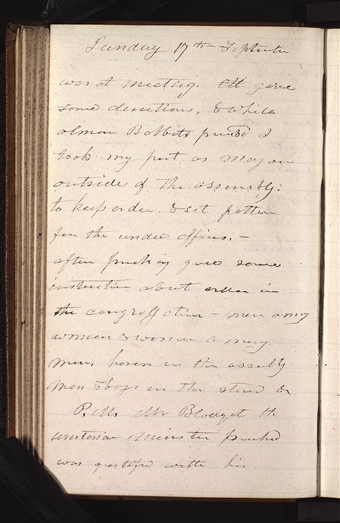 Sunday 17th September
was at meeting. Ett gave
some directions, & while
Almon Babbitt preachd I
took my post as mayor
outside of the assembly:
to keep order. & set pattern
for the under officers.—
after preaching gave some
instruction about order in
the congregation— men among
women & women among
men, horses in the assembly
men & boys on the stand &c
P.M. Mr Blodget th
unitarian minister preached
was gratified with his